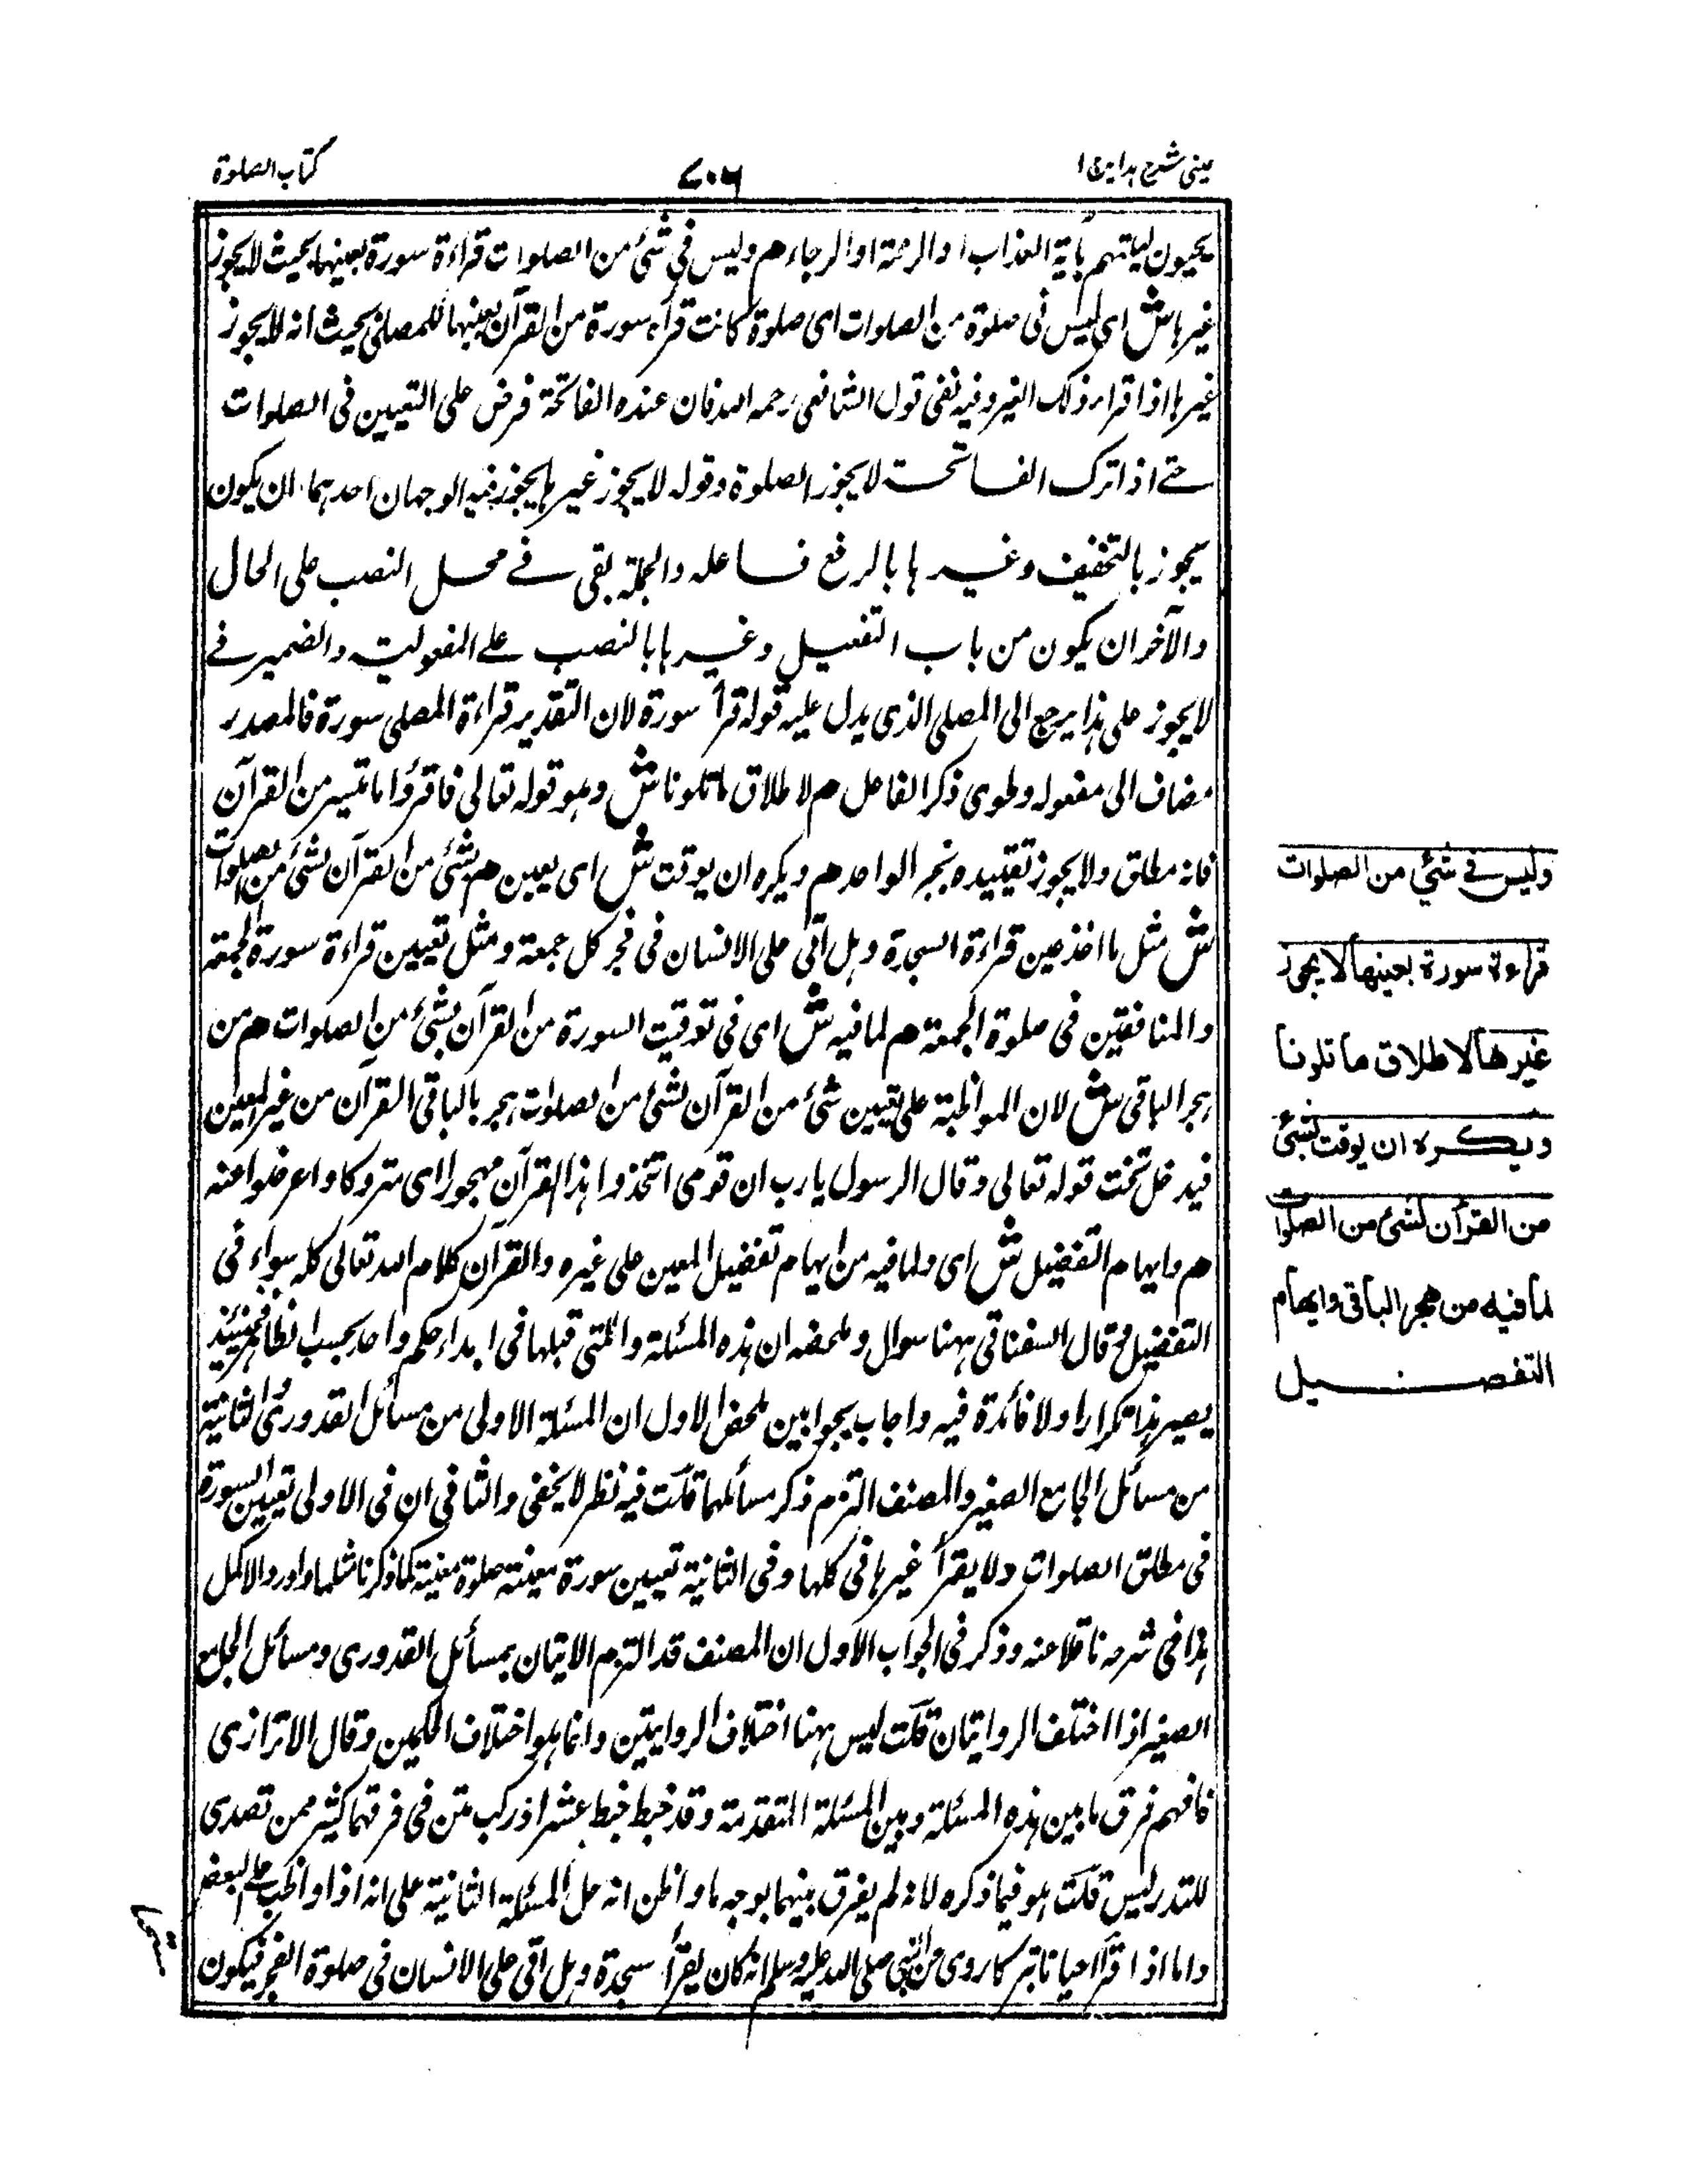 عینی شرح ہدایۃ ج ۱
۷۰۶
کتاب الصلوۃ
یحیون لیلتہم بآیۃ العذاب او الرحمۃ او الرجاء م ولیس فی شئ من الصلوات قراءۃ سورۃ بعینہا بحیث لا یجوز
غیرہا ش ای لیس فی صلوۃ من الصلوات ای صلوۃ کانت قراءۃ سورۃ من القرآن بعینہا للمصلی بحیث انہ لا یجوز
غیرہا اذا قراء ذلک الغیر وفیہ نفی قول الشافعی رحمہ اللہ فان عندہ الفاتحۃ فرض علی التعیین فی الصلوات
حتے اذا ترک الفاتحۃ لا یجوز الصلوۃ وقولہ لا یجوز غیرہا یجوز فیہ الوجہان احدہما ان یکون
یجوز بالتخفیف وغیرہا بالرفع فاعلہ والجملۃ بقی فے محل النصب علی الحال
والآخر ان یکون من باب التفعیل وغیرہا بالنصب علے المفعولیۃ والضمیر فے
لا یجوز علی ہذا یرجع الی المصلی الذی یدل علیہ قولہ قرأ سورۃ لان التقدیر قراءۃ المصلی سورۃ فالمصدر
مضاف الی مفعولہ وطوی ذکر الفاعل م لاطلاق ما تلونا ش وہو قولہ تعالی فاقرؤا ما تیسر من القرآن
فانہ مطلق ولا یجوز تقییدہ بخبر الواحد م ویکرہ ان یوقت ش ای یعین م بشئ من القرآن لشئ من الصلوات
ش مثل ما اخذ عین قراءۃ السجدۃ وہل اتی علی الانسان فی فجر کل جمعۃ ومثل تعیین قراءۃ سورۃ الجمعۃ
والمنافقین فی صلوۃ الجمعۃ م لما فیہ ش ای فی توقیت السورۃ من القرآن بشئ من الصلوات م من
ہجر الباقی ش لان المواظبۃ علی تعیین شئ من القرآن لشئ من الصلوات ہجر بالباقی القرآن من غیر المعین
فیدخل تحت قولہ تعالی وقال الرسول یا رب ان قومی اتخذوا ہذا القرآن مہجورا ای متروکا واعرضوا عنہ
م وایہام التفضیل ش ای ولما فیہ من ایہام تفضیل المعین علی غیرہ والقرآن کلام اللہ تعالی کلہ سواء فی
التفضیل م قال السغناقی ہہنا سوال وملخصہ ان ہذہ المسئلۃ والتی قبلہا فی ابداء حکم واحد بحسب الظاہر فحینئذ
یصیر ہذا تکرارا ولا فائدۃ فیہ واجاب بجوابین ملخص الاول ان المسئلۃ الاولی من مسائل القدوری والثانیۃ
من مسائل الجامع الصغیر والمصنف التزم ذکر مسائلہما قلت فیہ نظر لا یخفی والثانی ان فی الاولی تعیین السورۃ
فی مطلق الصلوات ولا یقرأ غیرہا فی کلہا وفی الثانیۃ تعیین سورۃ معینۃ صلوۃ معینۃ کما ذکرنا مثلہا واورد الاکمل
ہذا فی شرحہ ناقلا عنہ وذکر فی الجواب الاول ان المصنف قد التزم الاتیان بمسائل القدوری ومسائل الجامع
الصغیر اذا اختلف الروایتان قلت لیس ہہنا اختلاف الروایتین وانما ہو اختلاف الحکمین وقال الاترازی
فافہم فرق ما بین ہذہ المسئلۃ وبین المسئلۃ المتقدمۃ وقد خبط خبط عشواء رکب متن فی فرقہما کثیر ممن تصدی
للتدریس قلت ہو فیما ذکرہ لانہ لم یفرق بینہما بوجہ ما واظن انہ حمل المسئلۃ الثانیۃ علی انہ اذا واظب علی البعض
واما اذا قرأ احیانا تبرکا روی عن النبی صلی اللہ علیہ وسلم انہ کان یقرأ سجدۃ وہل اتی علی الانسان فی صلوۃ الفجر فیکون
ولیس فے شئ من الصلوات
قراءۃ سورۃ بعینہا لا یجوز
غیرہا لاطلاق ما تلونا
ویکرہ ان یوقت بشئ
من القرآن لشئ من الصلوات
لما فیہ من ھجر الباقی وایھام
التفضیل